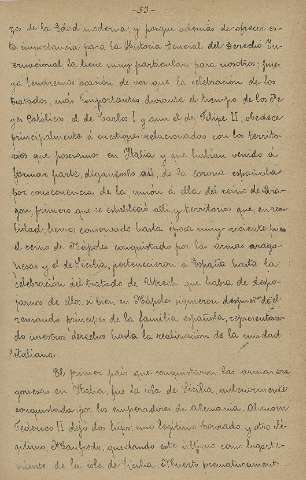 -53-
zos de la Edad moderna y porque además de ofrecer es-
ta importancia para la Historia General del Derecho In-
ternacional la tiene muy particular para nosotros, pues
ya tendremos ocasión de ver que la celebración de los
tratados, más importantes durante el tiempo de los Re-
yes Católicos el de Carlos I y aun el de Felipe II, obedece
principalmente á cuestiones relacionadas con los territo-
rios que poseíamos en Italia y que habían venido á
formar parte, digámoslo así, de la corona española
por consecuencia de la unión á ella del reino de Ara-
gón, primero que se estableció allí, y territorios que, en rea-
lidad hemos conservado hasta época muy reciente pues
el reino de Nápoles conquistado por las armas arago-
nesas y el de Sicilia, pertenecieron á España hasta la
celebración del tratado de Utrech que había de despo-
jarnos de ellos, si bien en Nápoles siguieron después
reinando príncipes de la familia española, representan-
do nuestros derechos hasta la realización de la unidad
italiana.
El primer país que conquistaron las armas ara-
gonesas en Italia, fué la isla de Sicilia, anteriormente
conquistada por los emperadores de Alemania. Al morir
Federico II dejó dos hijos, uno legítimo Conrado, y otro ile-
gítimo Manfredo, quedando este último como lugarte-
niente de la isla de Sicilia. Muerto prematuramente